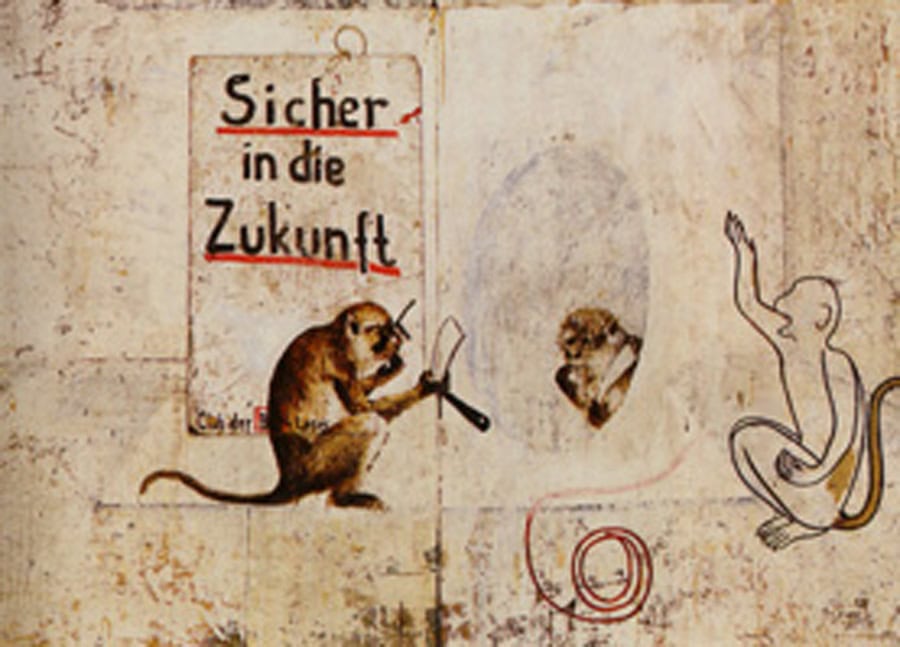 Sicher
in die
Zukunft
Club der